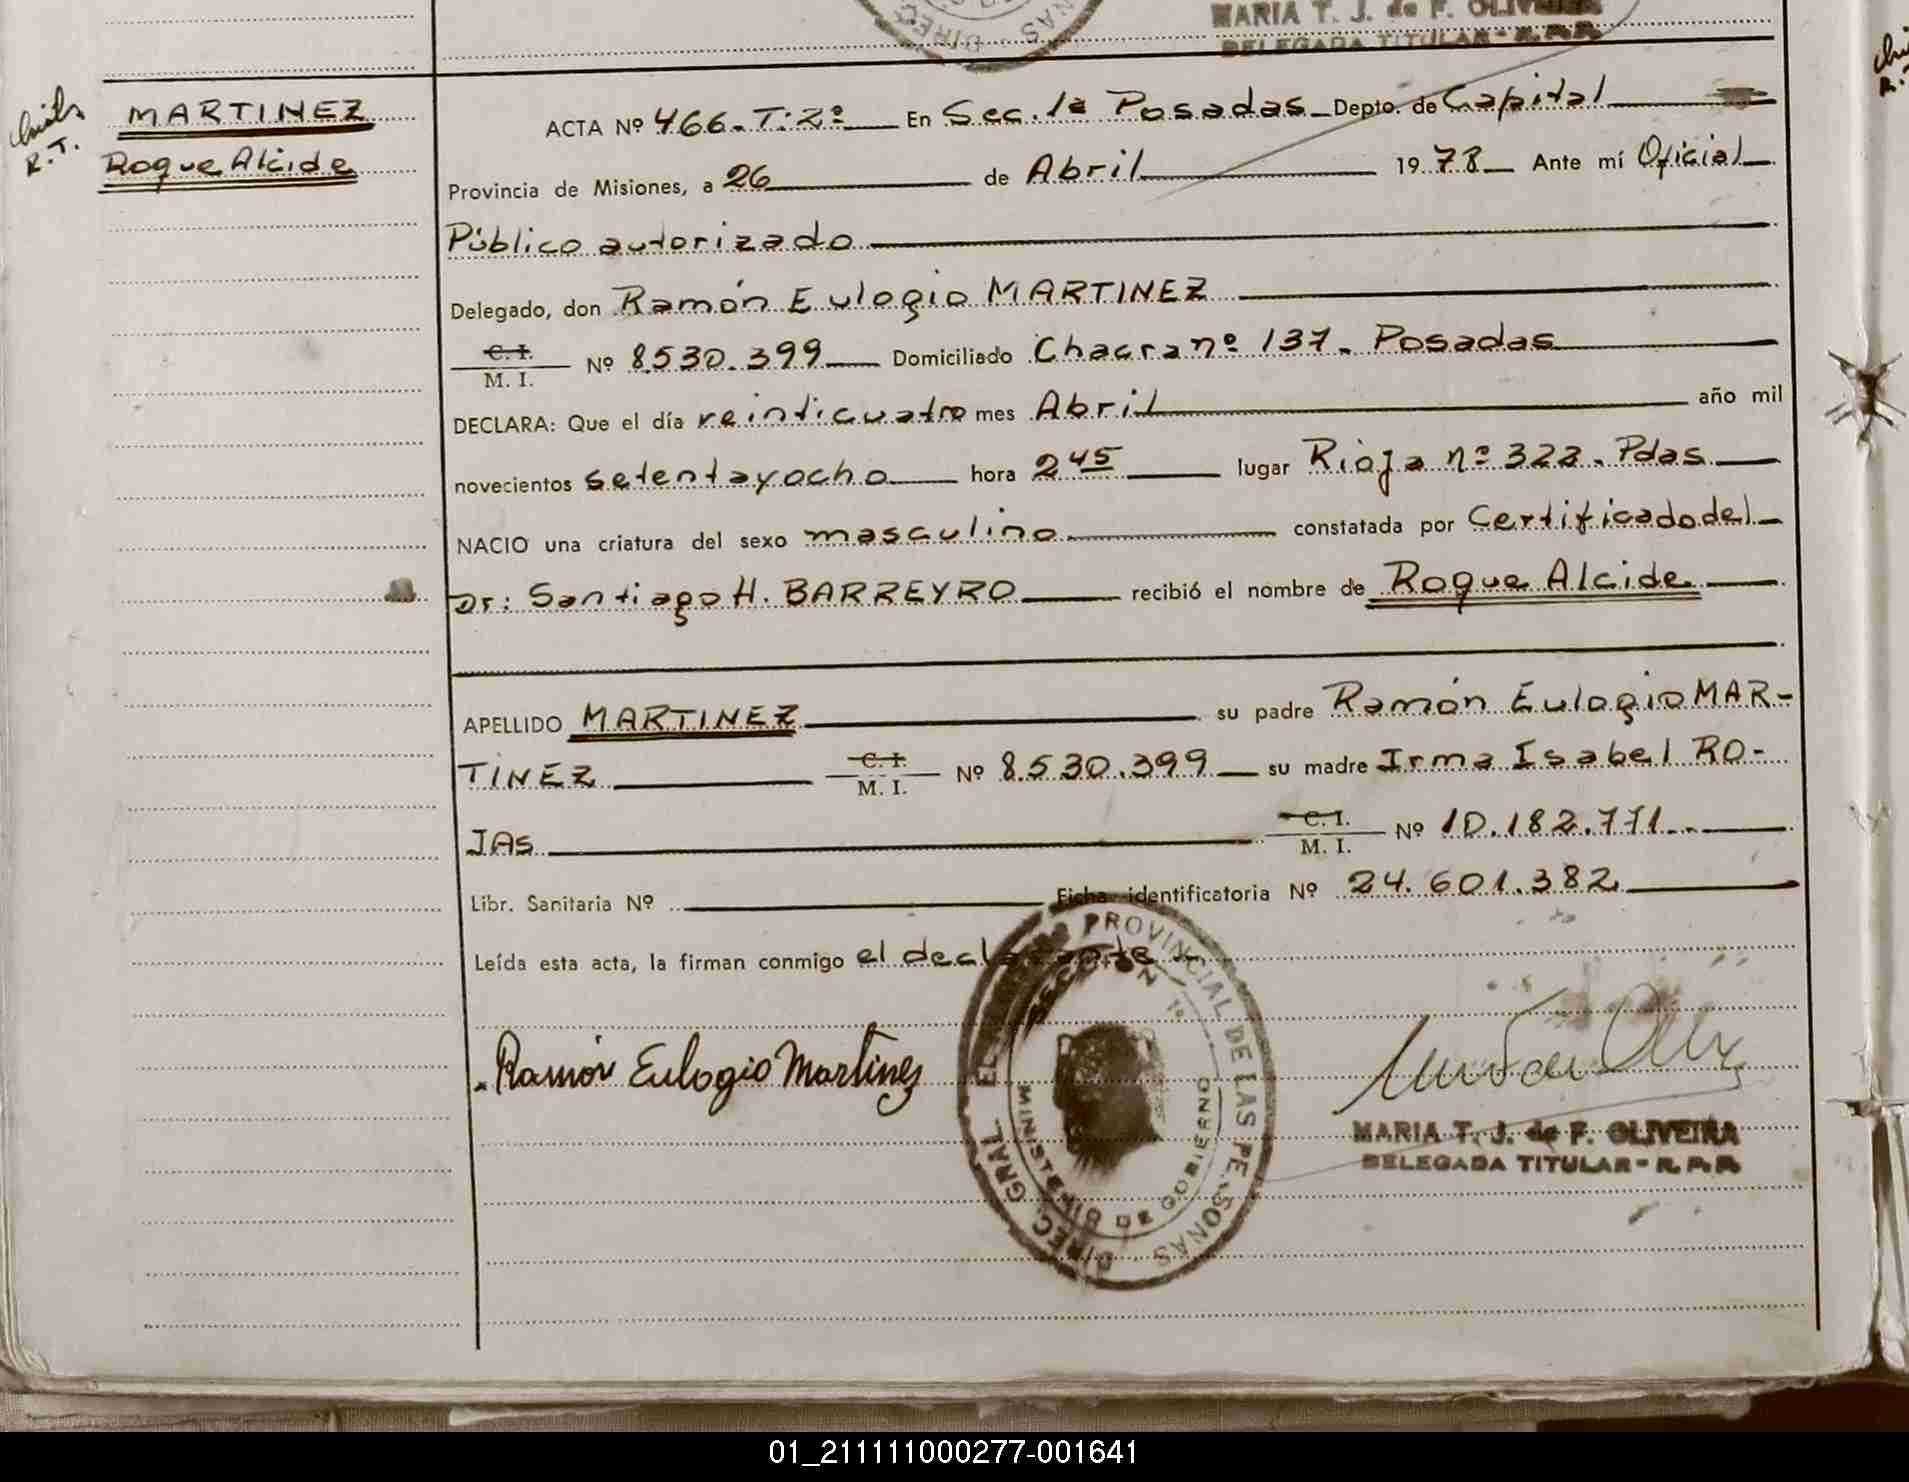 MARIA T. J. de F. OLIVEIRA
DELEGADA TITULAR - R.P.P.
MARTINEZ
Roque Alcide
R.T.
ACTA Nº 466. T: 2º En Sec. 1ª Posadas Depto. de Capital
Provincia de Misiones, a 26 de Abril 1978 Ante mí Oficial
Público autorizado
Delegado, don Ramón Eulogio MARTINEZ
C. I.
M. I. Nº 8.530.399 Domiciliado Chacra nº 137. Posadas
DECLARA: Que el día veinticuatro mes Abril año mil
novecientos setenta y ocho hora 2 45 lugar Rioja nº 323. Pdas
NACIO una criatura del sexo masculino constatada por Certificado del
Dr: Santiago H. BARREYRO recibió el nombre de Roque Alcide
APELLIDO MARTINEZ su padre Ramón Eulogio MAR-
TINEZ C. I. M. I. Nº 8.530.399 su madre Irma Isabel RO-
JAS C. I. M. I. Nº 10.182.771
Libr. Sanitaria Nº Ficha identificatoria Nº 24.601.382
Leída esta acta, la firman conmigo el declarante
Ramón Eulogio Martinez
DIREC. GRAL. EL REGISTRO PROVINCIAL DE LAS PERSONAS
SECCION 1ª
MINISTERIO DE GOBIERNO
MARIA T. J. de F. OLIVEIRA
DELEGADA TITULAR - R.P.P.
01_211111000277-001641